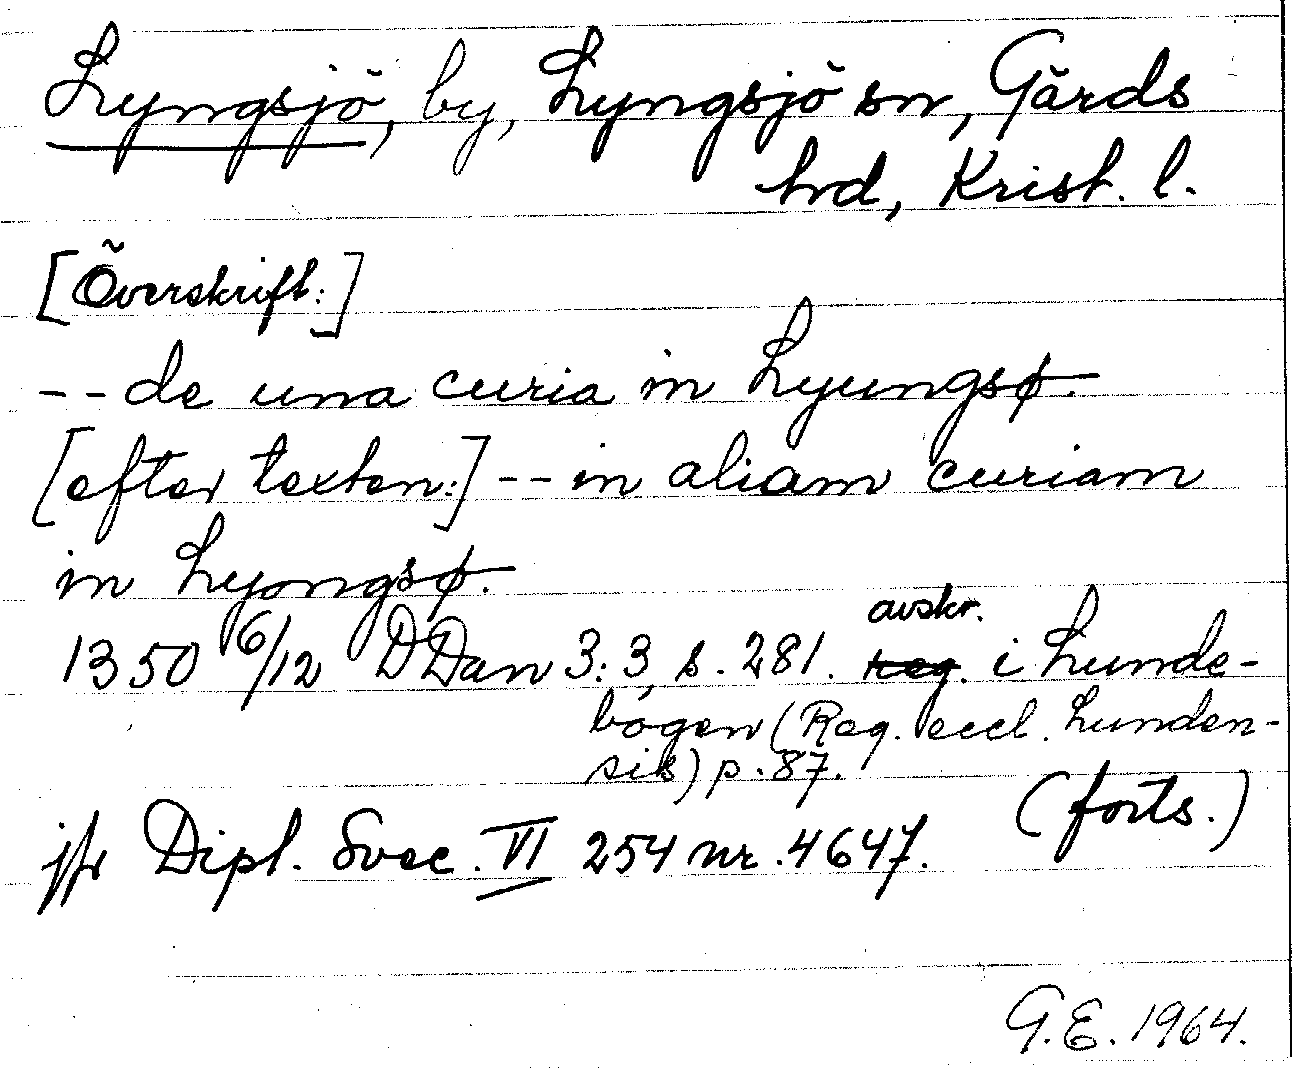 Lyngsjö, by, Lyngsjö sn, Gärds
hrd, Krist. l.
[Överskrift:]
-- de una curia in Lyungsø.
[efter texten:] -- in aliam curiam
in Lyongsø.
1350 6/12 DDan 3:3, s. 281. avskr. reg. i Lunde-
bogen (Reg. eccl. Lunden-
sis) p. 87.
(forts.)
jfr Dipl. Svec. VI 254 nr. 4647.
G.E. 1964.